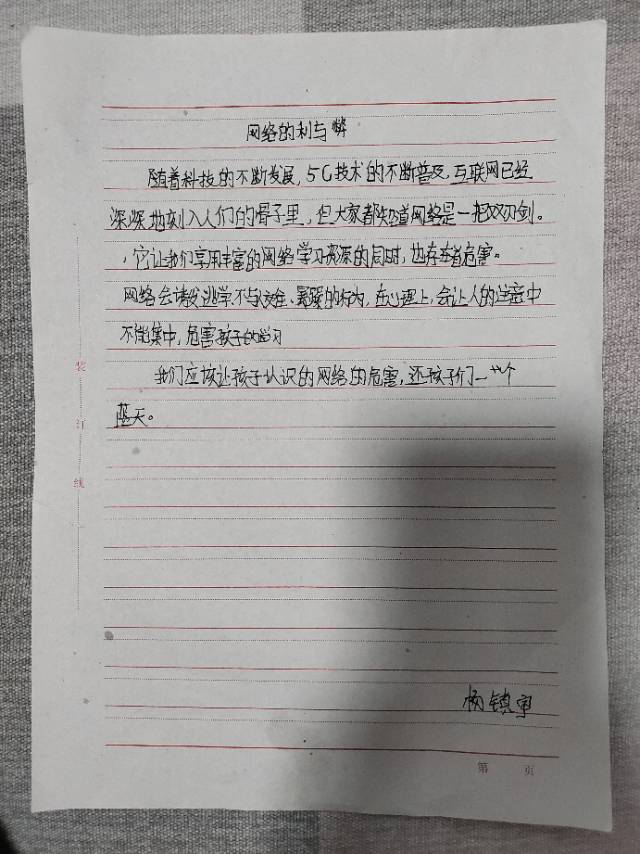 网络的利与弊
随着科技的不断发展,5G技术的不断普及,互联网已经
深深地刻入人们的骨子里,但大家都知道网络是一把双刃剑。
,它让我们享用丰富的网络学习资源的同时,也存在着危害。
网络会诱发逃学不与 、 的行为,在心理上,会让人的注意中
不能集中,危害孩子的学习
我们应该让孩子认识的网络的危害,还孩子们一个
蓝天。
杨镇宇
装
订
线
第 页